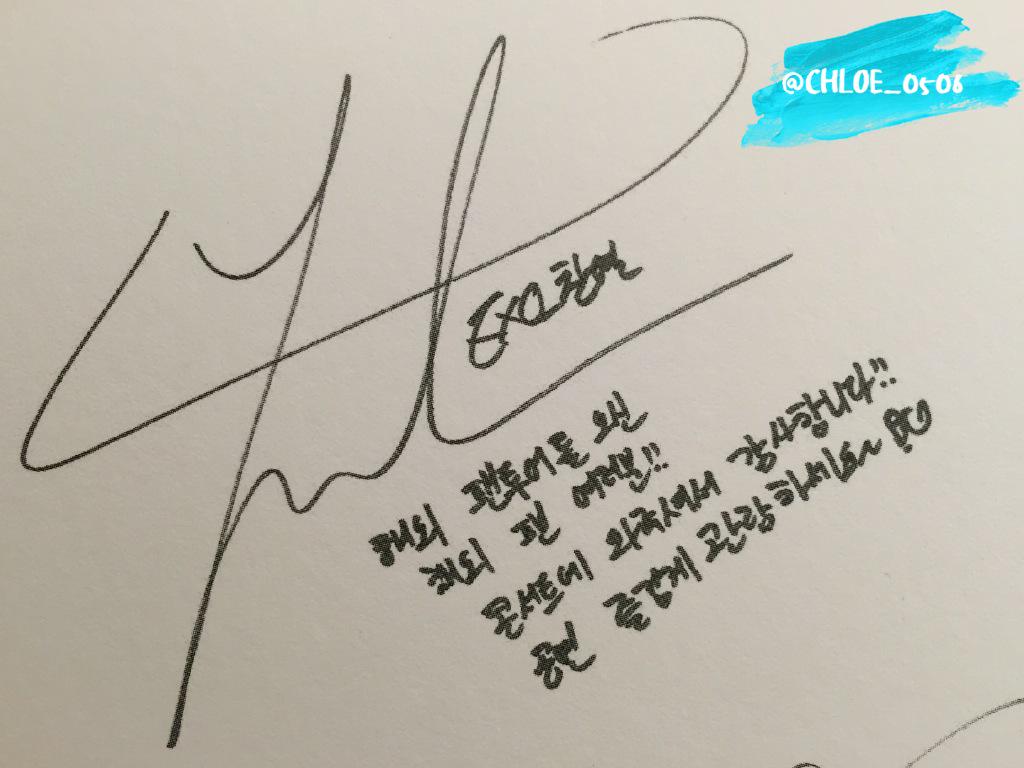 @CHLOE_0506
EXO 찬열
해외 팬투어로 오신
해외 팬 여러분!!
콘서트에 와주셔서 감사합니다!!
공연 즐겁게 관람하세요~